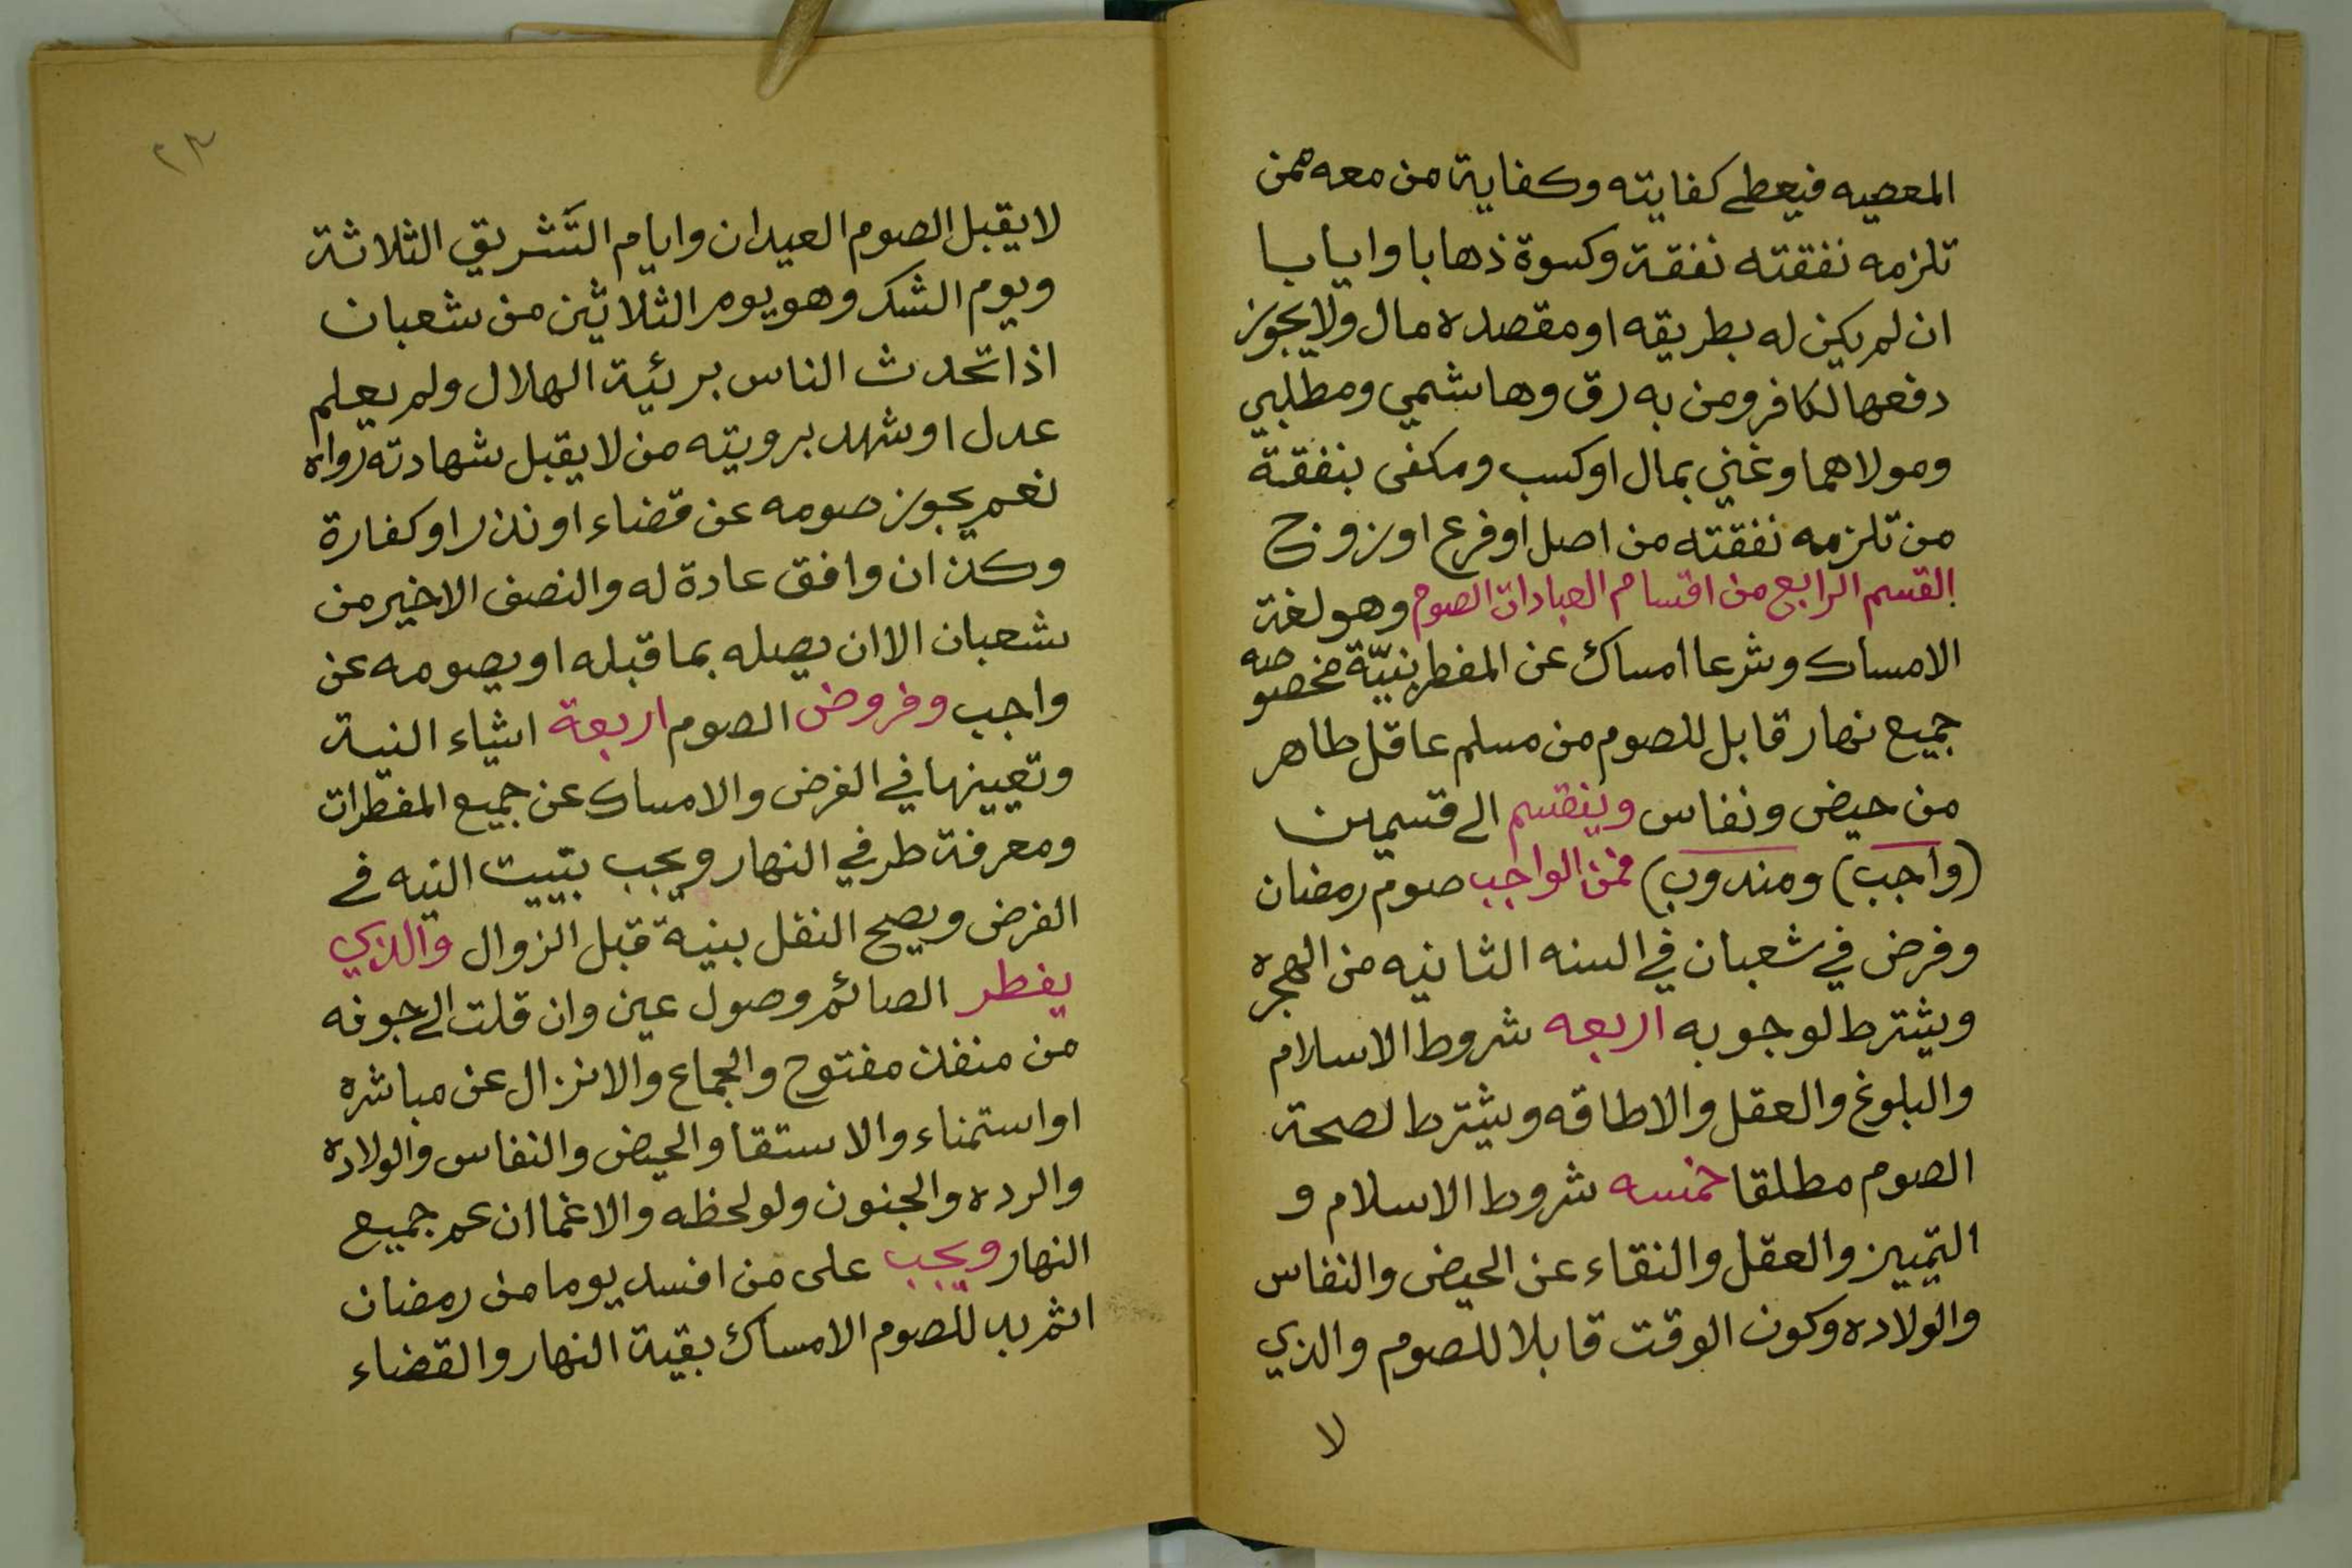 المعصيه فيعطى كفايته وكفاية من معه ممن
تلزمه نفقته نفقة وكسوة ذهابا وايابا
ان لم يكن له بطريقه او مقصده مال ولا يجوز
دفعها لكافر ومن به رق وهاشمي ومطلبي
ومولاهما وغني بمال او كسب ومكفى بنفقة
من تلزمه نفقته من اصل او فرع او زوج
القسم الرابع من اقسام العبادات الصوم وهو لغة
الامساك وشرعا امساك عن المفطر بنيّة مخصوصه
جميع نهار قابل للصوم من مسلم عاقل طاهر
من حيض ونفاس وينقسم الى قسمين
(واجب) ومندوب) فمن الواجب صوم رمضان
وفرض في شعبان في السنه الثانيه من الهجره
ويشترط لوجوبه اربعه شروط الاسلام
والبلوغ والعقل والاطاقه ويشترط لصحة
الصوم مطلقا خمسه شروط الاسلام و
التمييز والعقل والنقاء عن الحيض والنفاس
والولاده وكون الوقت قابلا للصوم والذي
لا
٢٣
لا يقبل الصوم العيدان وايام التَّشريق الثلاثة
ويوم الشك وهو يوم الثلاثين من شعبان
اذا تحدث الناس برئية الهلال ولم يعلم
عدل او شهد برويته من لا يقبل شهادته رواه
نعم يجوز صومه عن قضاء او نذر او كفارة
وكذ ان وافق عادة له والنصف الاخير من
شعبان الا ان يصله بما قبله او يصومه عن
واجب وفروض الصوم اربعة اشياء النية
وتعيينها في الفرض والامساك عن جميع المفطرات
ومعرفة طرفي النهار ويجب بتييت النيه في
الفرض ويصح النقل بنية قبل الزوال والذي
يفطر الصائم وصول عين وان قلت الى جوفه
من منفذ مفتوح والجماع والانزال عن مباشره
او استمناء والاستقا والحيض والنفاس والولاده
والرده والجنون ولو لحظه والاغما ان عم جميع
النهار ويجب على من افسد يوما من رمضان
اثم به للصوم الامساك بقية النهار والقضاء